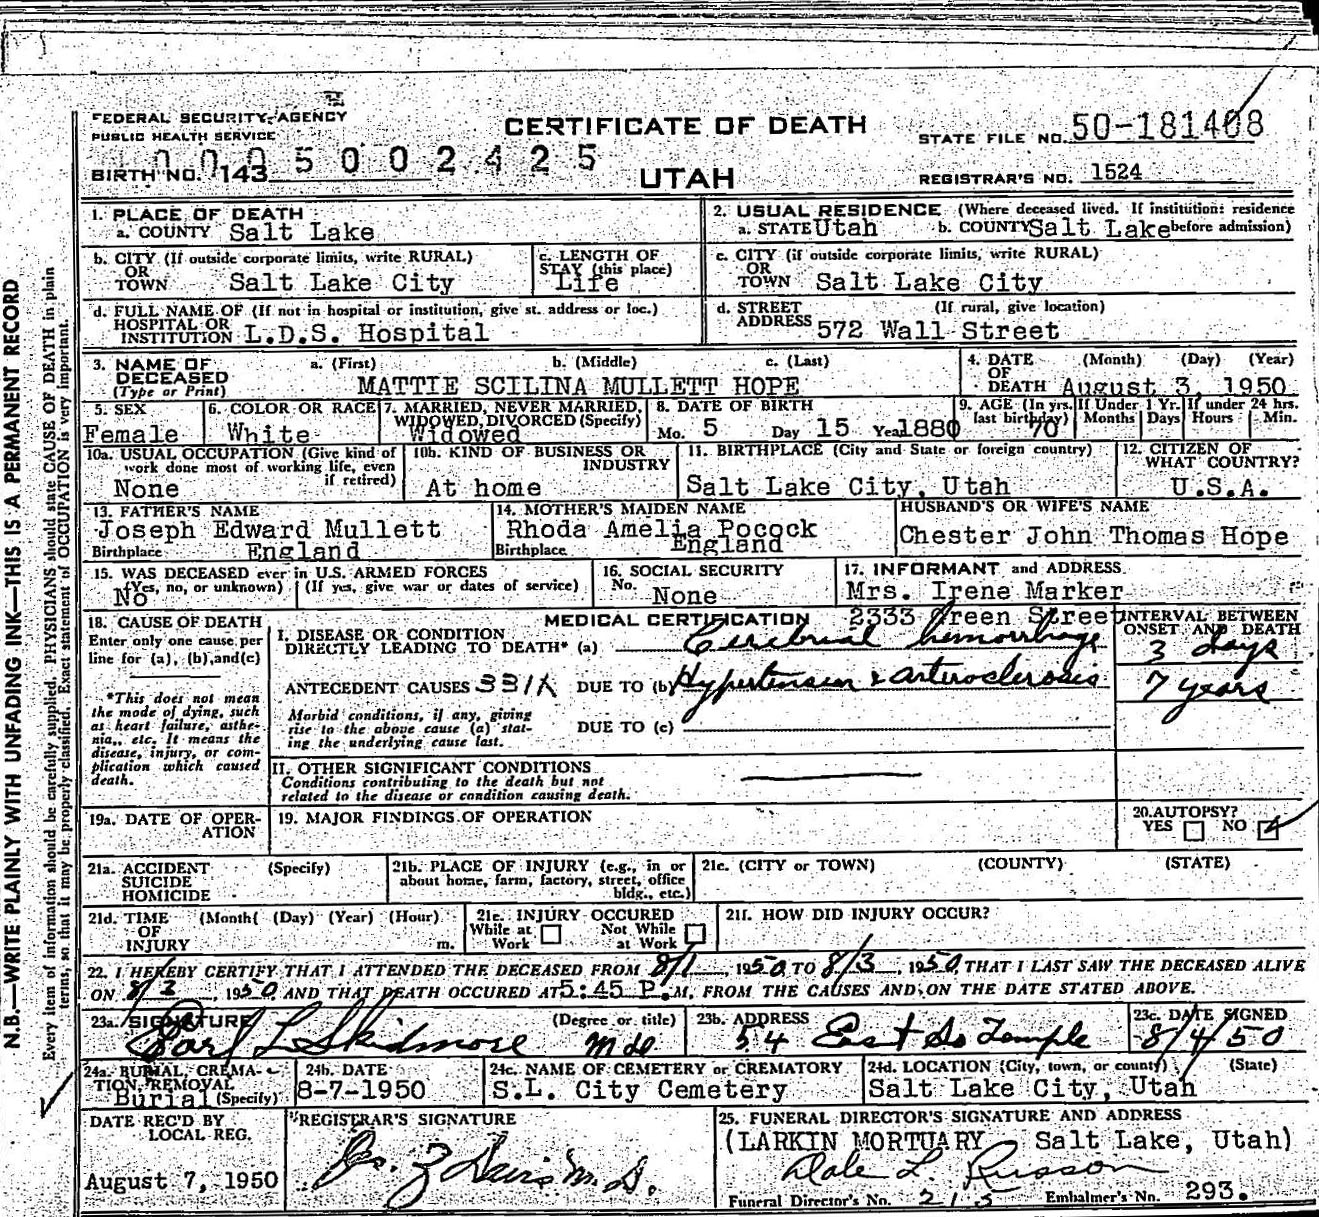 FEDERAL SECURITY AGENCY
PUBLIC HEALTH SERVICE
CERTIFICATE OF DEATH
UTAH
STATE FILE NO. 50-181408
REGISTRAR'S NO. 1524
0005002425
BIRTH NO. 143
N.B.—WRITE PLAINLY WITH UNFADING INK—THIS IS A PERMANENT RECORD
Every item of information should be carefully supplied. PHYSICIANS should state CAUSE OF DEATH in plain
terms, so that it may be properly classified. Exact statement of OCCUPATION is very important.
1. PLACE OF DEATH
a. COUNTY Salt Lake
2. USUAL RESIDENCE (Where deceased lived. If institution: residence
a. STATE Utah b. COUNTY Salt Lake before admission)
b. CITY (If outside corporate limits, write RURAL)
OR
TOWN Salt Lake City
c. LENGTH OF
STAY (this place)
Life
c. CITY (if outside corporate limits, write RURAL)
OR
TOWN Salt Lake City
d. FULL NAME OF (If not in hospital or institution, give st. address or loc.)
HOSPITAL OR
INSTITUTION L.D.S. Hospital
d. STREET (If rural, give location)
ADDRESS 572 Wall Street
3. NAME OF DECEASED
(Type or Print)
a. (First) b. (Middle) c. (Last)
MATTIE SCILINA MULLETT HOPE
4. DATE OF DEATH (Month) (Day) (Year)
August 3, 1950
5. SEX
Female
6. COLOR OR RACE
White
7. MARRIED, NEVER MARRIED,
WIDOWED, DIVORCED (Specify)
Widowed
8. DATE OF BIRTH
Mo. 5 Day 15 Year 1880
9. AGE (In yrs. last birthday) 70
If Under 1 Yr. Months Days
If under 24 hrs. Hours Min.
10a. USUAL OCCUPATION (Give kind of
work done most of working life, even
if retired)
None
10b. KIND OF BUSINESS OR
INDUSTRY
At home
11. BIRTHPLACE (City and State or foreign country)
Salt Lake City, Utah
12. CITIZEN OF
WHAT COUNTRY?
U.S.A.
13. FATHER'S NAME
Joseph Edward Mullett
Birthplace England
14. MOTHER'S MAIDEN NAME
Rhoda Amelia Pocock
Birthplace England
HUSBAND'S OR WIFE'S NAME
Chester John Thomas Hope
15. WAS DECEASED ever in U.S. ARMED FORCES
(Yes, no, or unknown) (If yes, give war or dates of service)
No
16. SOCIAL SECURITY
No. None
17. INFORMANT and ADDRESS
Mrs. Irene Marker
2333 Green Street
18. CAUSE OF DEATH
Enter only one cause per
line for (a), (b), and (c)
*This does not mean
the mode of dying, such
as heart failure, asthe-
nia, etc. It means the
disease, injury, or com-
plication which caused
death.
MEDICAL CERTIFICATION
INTERVAL BETWEEN
ONSET AND DEATH
I. DISEASE OR CONDITION
DIRECTLY LEADING TO DEATH* (a) Cerebrial hemorrhage
3 days
ANTECEDENT CAUSES 331X DUE TO (b) Hypertension & arterosclerosis
7 years
Morbid conditions, if any, giving
rise to the above cause (a) stat-
ing the underlying cause last.
DUE TO (c)
II. OTHER SIGNIFICANT CONDITIONS
Conditions contributing to the death but not
related to the disease or condition causing death.
19a. DATE OF OPER-
ATION
19. MAJOR FINDINGS OF OPERATION
20. AUTOPSY?
YES NO
21a. ACCIDENT (Specify)
SUICIDE
HOMICIDE
21b. PLACE OF INJURY (e.g., in or
about home, farm, factory, street, office
bldg., etc.)
21c. (CITY or TOWN) (COUNTY) (STATE)
21d. TIME (Month( (Day) (Year) (Hour)
OF
INJURY m.
21e. INJURY OCCURED
While at Work Not While at Work
21f. HOW DID INJURY OCCUR?
22. I HEREBY CERTIFY THAT I ATTENDED THE DECEASED FROM 8/1, 1950 TO 8/3, 1950, THAT I LAST SAW THE DECEASED ALIVE
ON 8/3, 1950, AND THAT DEATH OCCURED AT 5:45 P.M. FROM THE CAUSES AND ON THE DATE STATED ABOVE.
23a. SIGNATURE (Degree or title)
Earl L Skidmore
23b. ADDRESS
54 East So Temple
23c. DATE SIGNED
8/4/50
24a. BURIAL, CREMA-
TION, REMOVAL
Burial (Specify)
24b. DATE
8-7-1950
24c. NAME OF CEMETERY or CREMATORY
S.L. City Cemetery
24d. LOCATION (City, town, or county) (State)
Salt Lake City, Utah
DATE REC'D BY
LOCAL REG.
August 7, 1950
REGISTRAR'S SIGNATURE
25. FUNERAL DIRECTOR'S SIGNATURE AND ADDRESS
(LARKIN MORTUARY Salt Lake, Utah)
Dale L. Russon
Funeral Director's No. 215 Embalmer's No. 293.